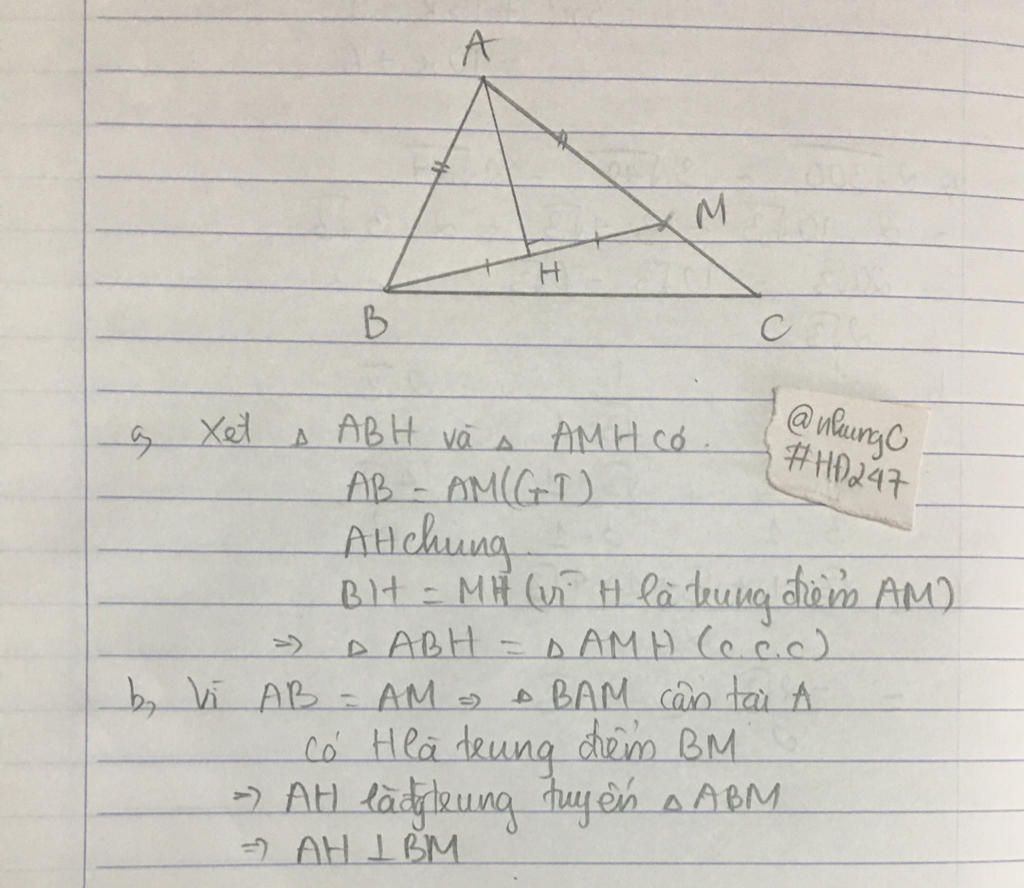 A
M
H
B
C
a, Xét △ ABH và △ AMH có.
@nhungC
#HD247
AB = AM(GT)
AH chung.
BH = MH (vì H là trung điểm AM)
=> △ ABH = △ AMH (c.c.c)
b, Vì AB = AM => △ BAM cân tại A
có H là trung điểm BM
=> AH là trung tuyến △ ABM
=> AH ⊥ BM